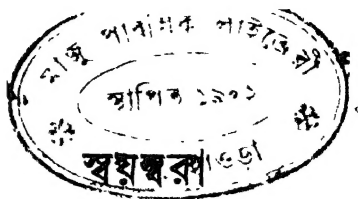 মাজু পাবলিক লাইব্রেরী
স্থাপিত ১৯০২
স্বয়ম্বরা
হাওড়া